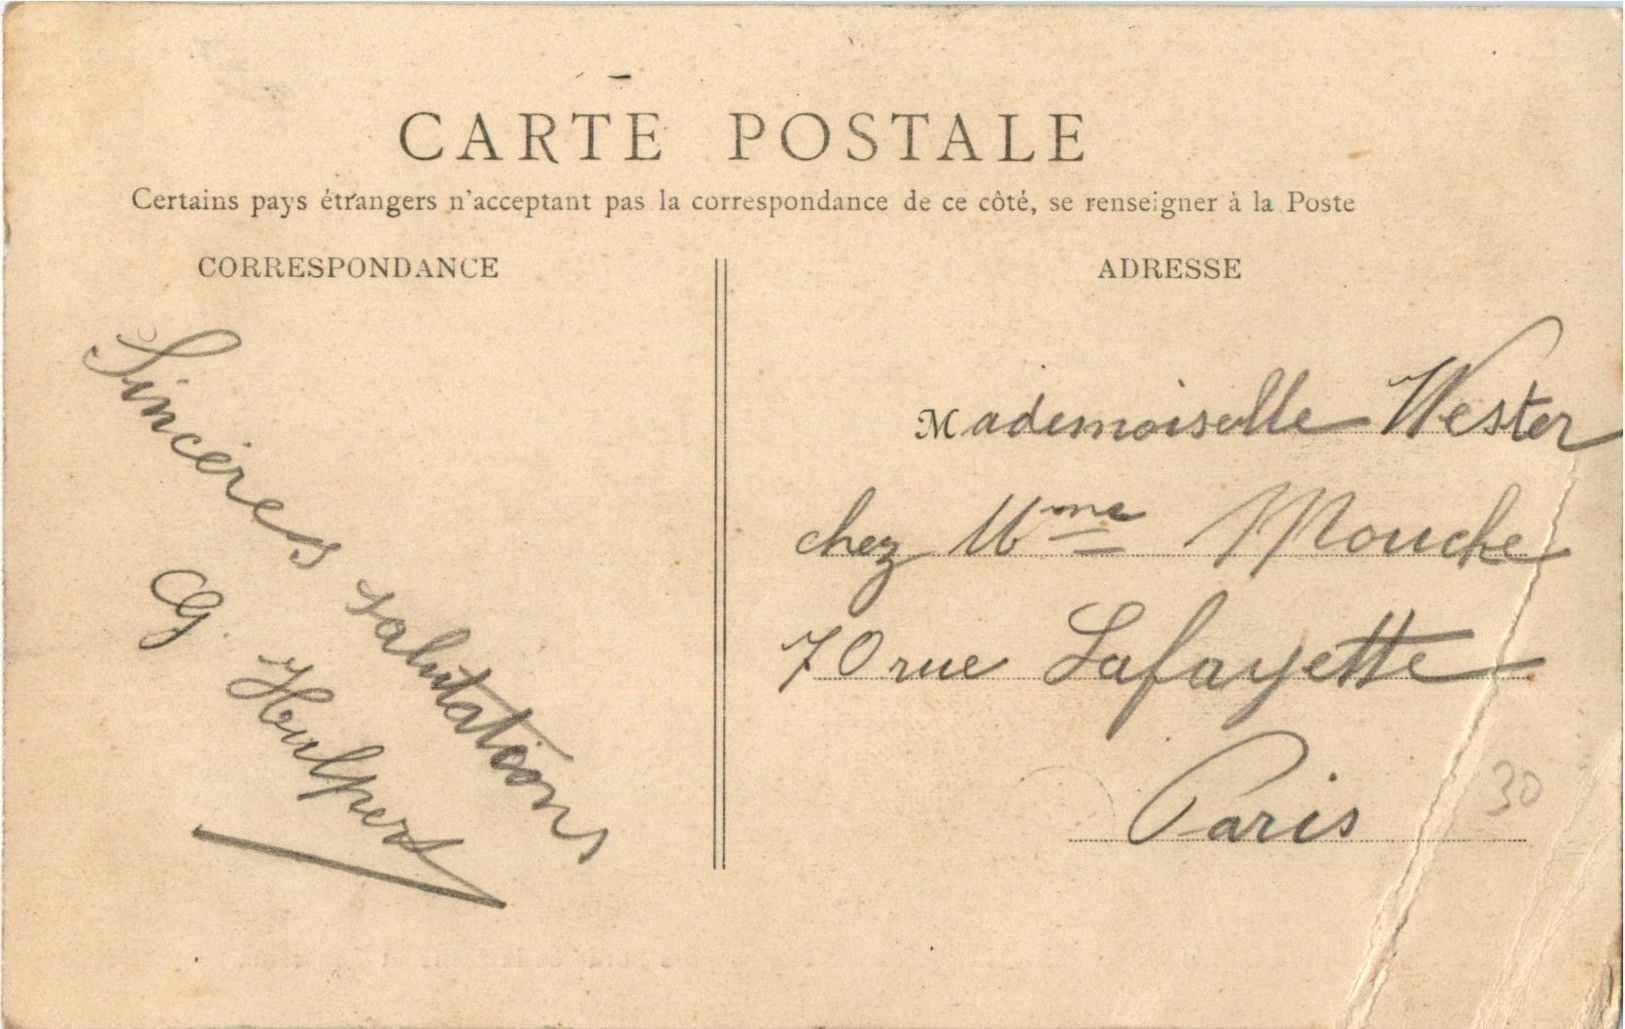 CARTE POSTALE
Certains pays étrangers n'acceptent pas la correspondance de ce côté, se renseigner à la Poste
CORRESPONDANCE
Sincères salutations
G. Houlpert
ADRESSE
Mademoiselle Wester
chez Mme Mouche
70 rue Lafayette
Paris
30